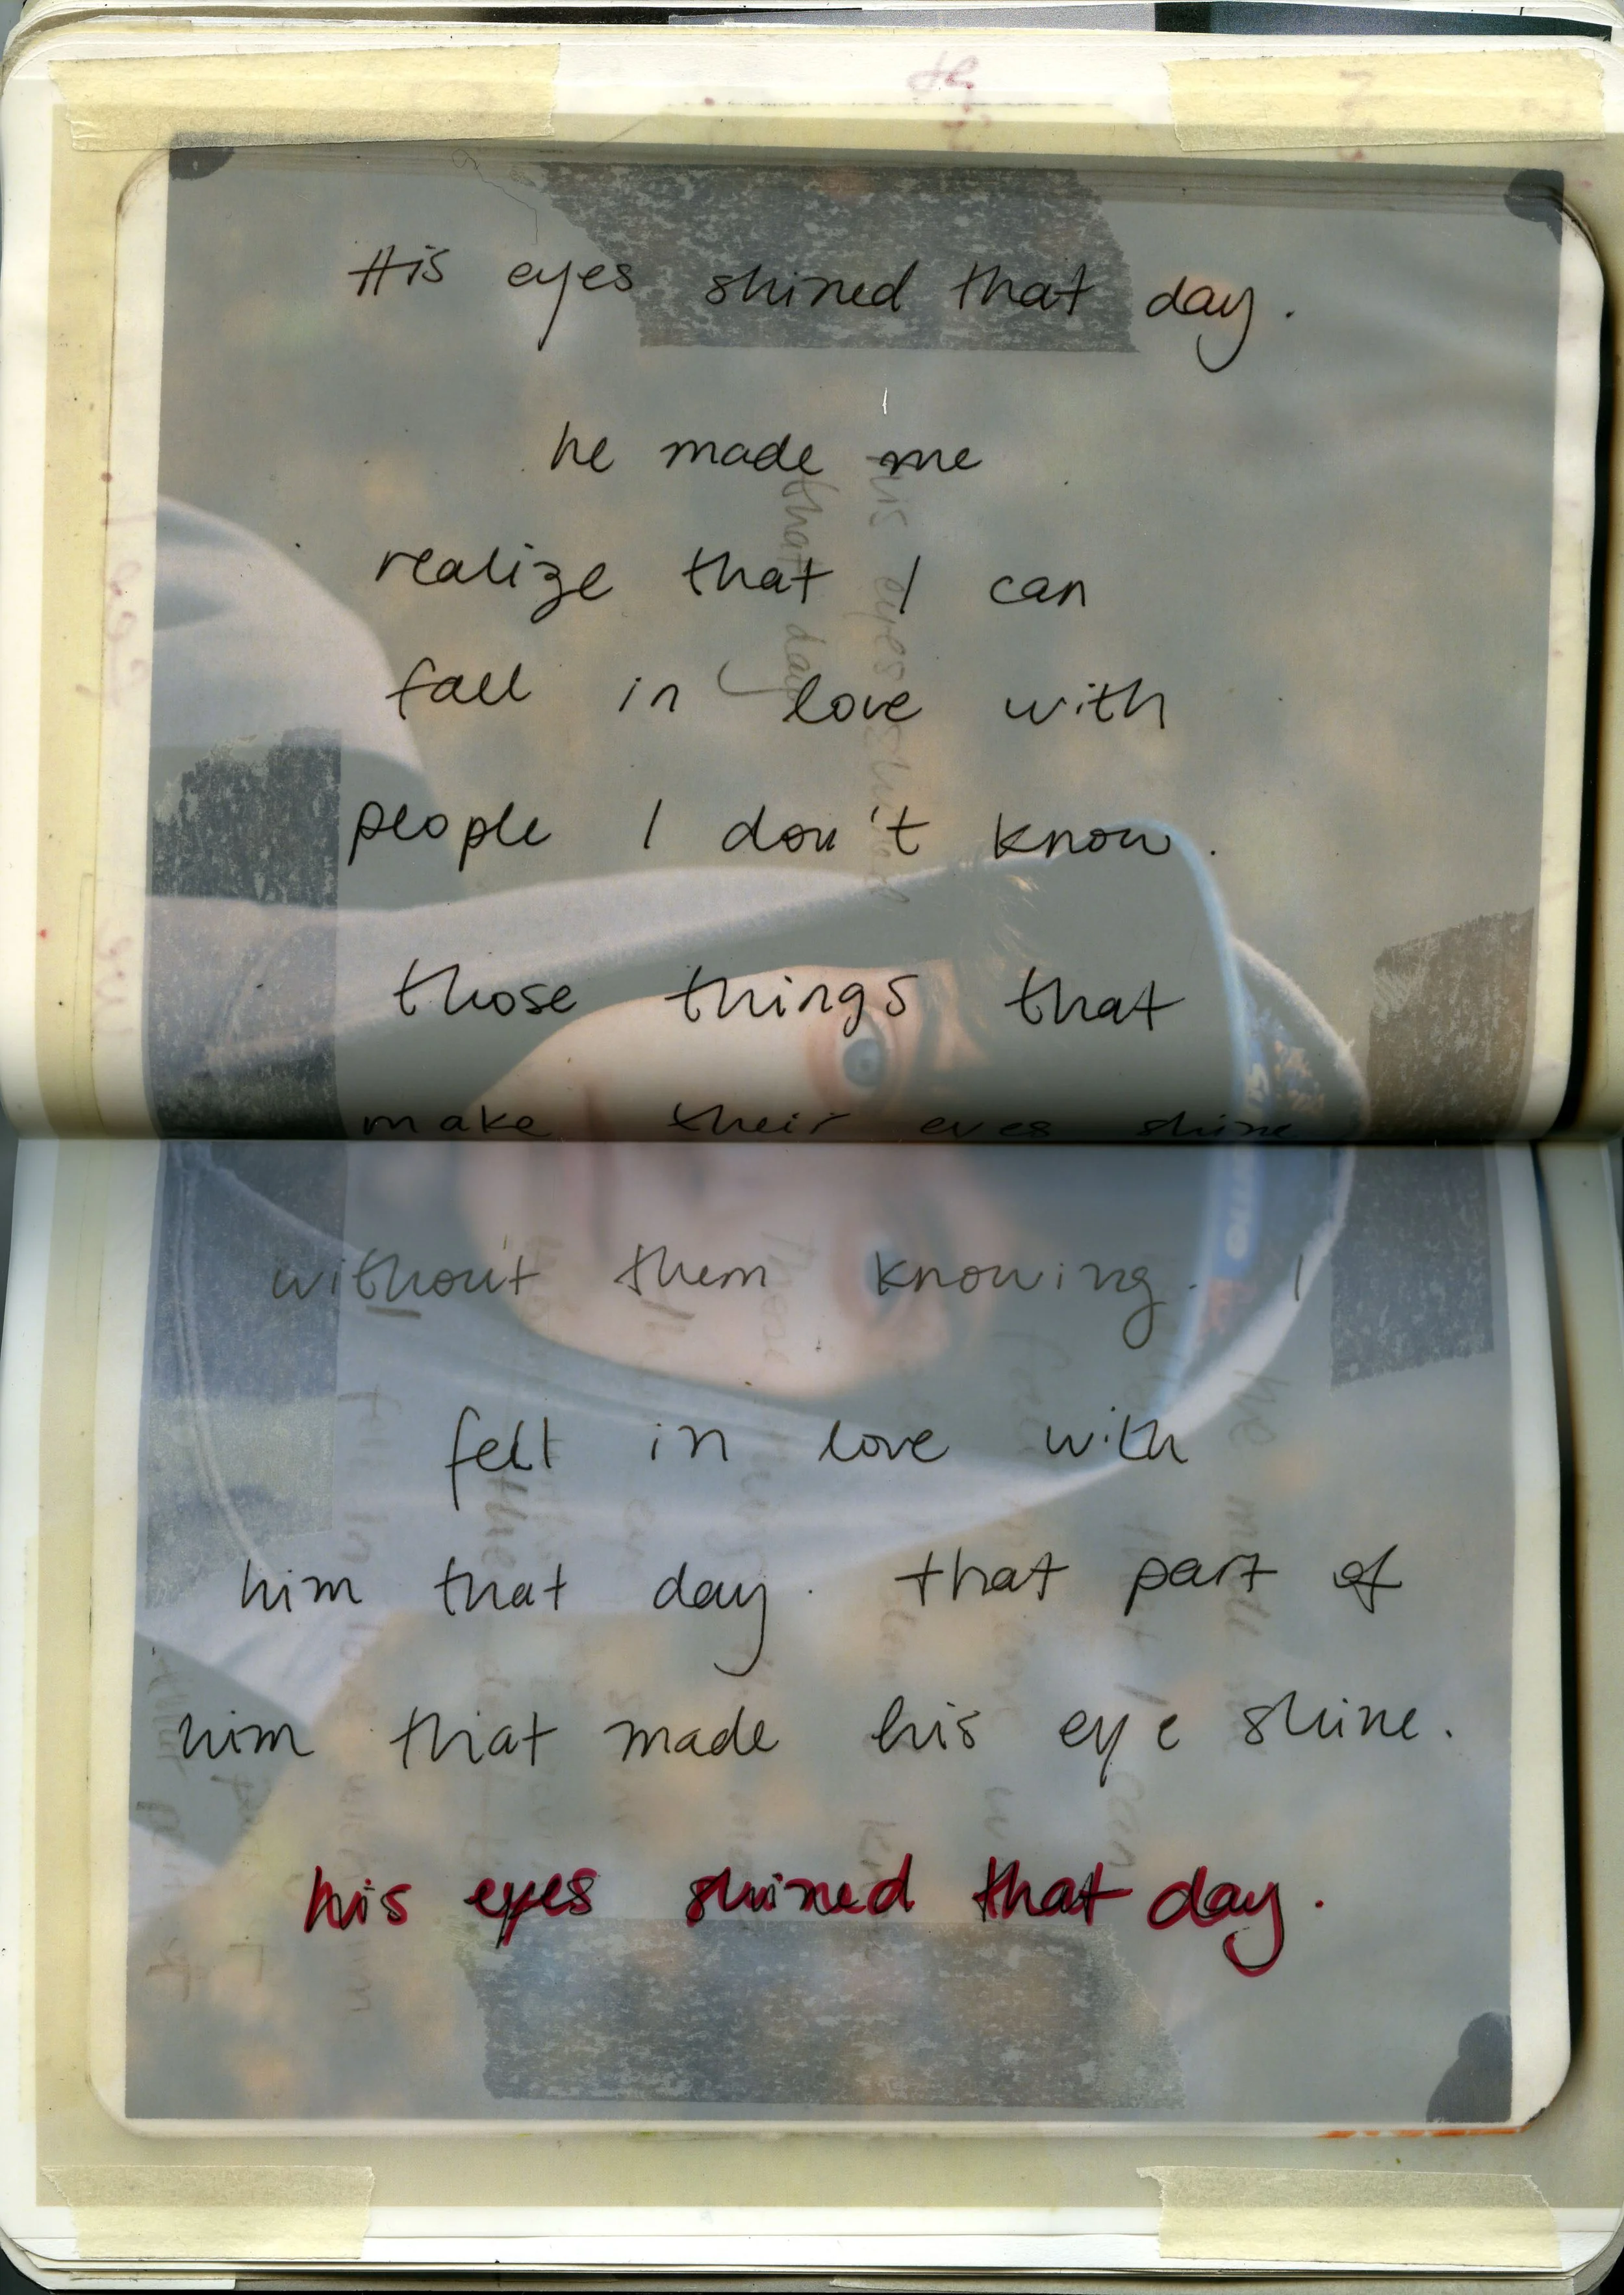 His eyes shined that day.
he made me
realize that I can
fall in love with
people I don't know.
those things that
make their eyes shine
without them knowing. I
felt in love with
him that day. that part of
him that made his eye shine.
his eyes shined that day.